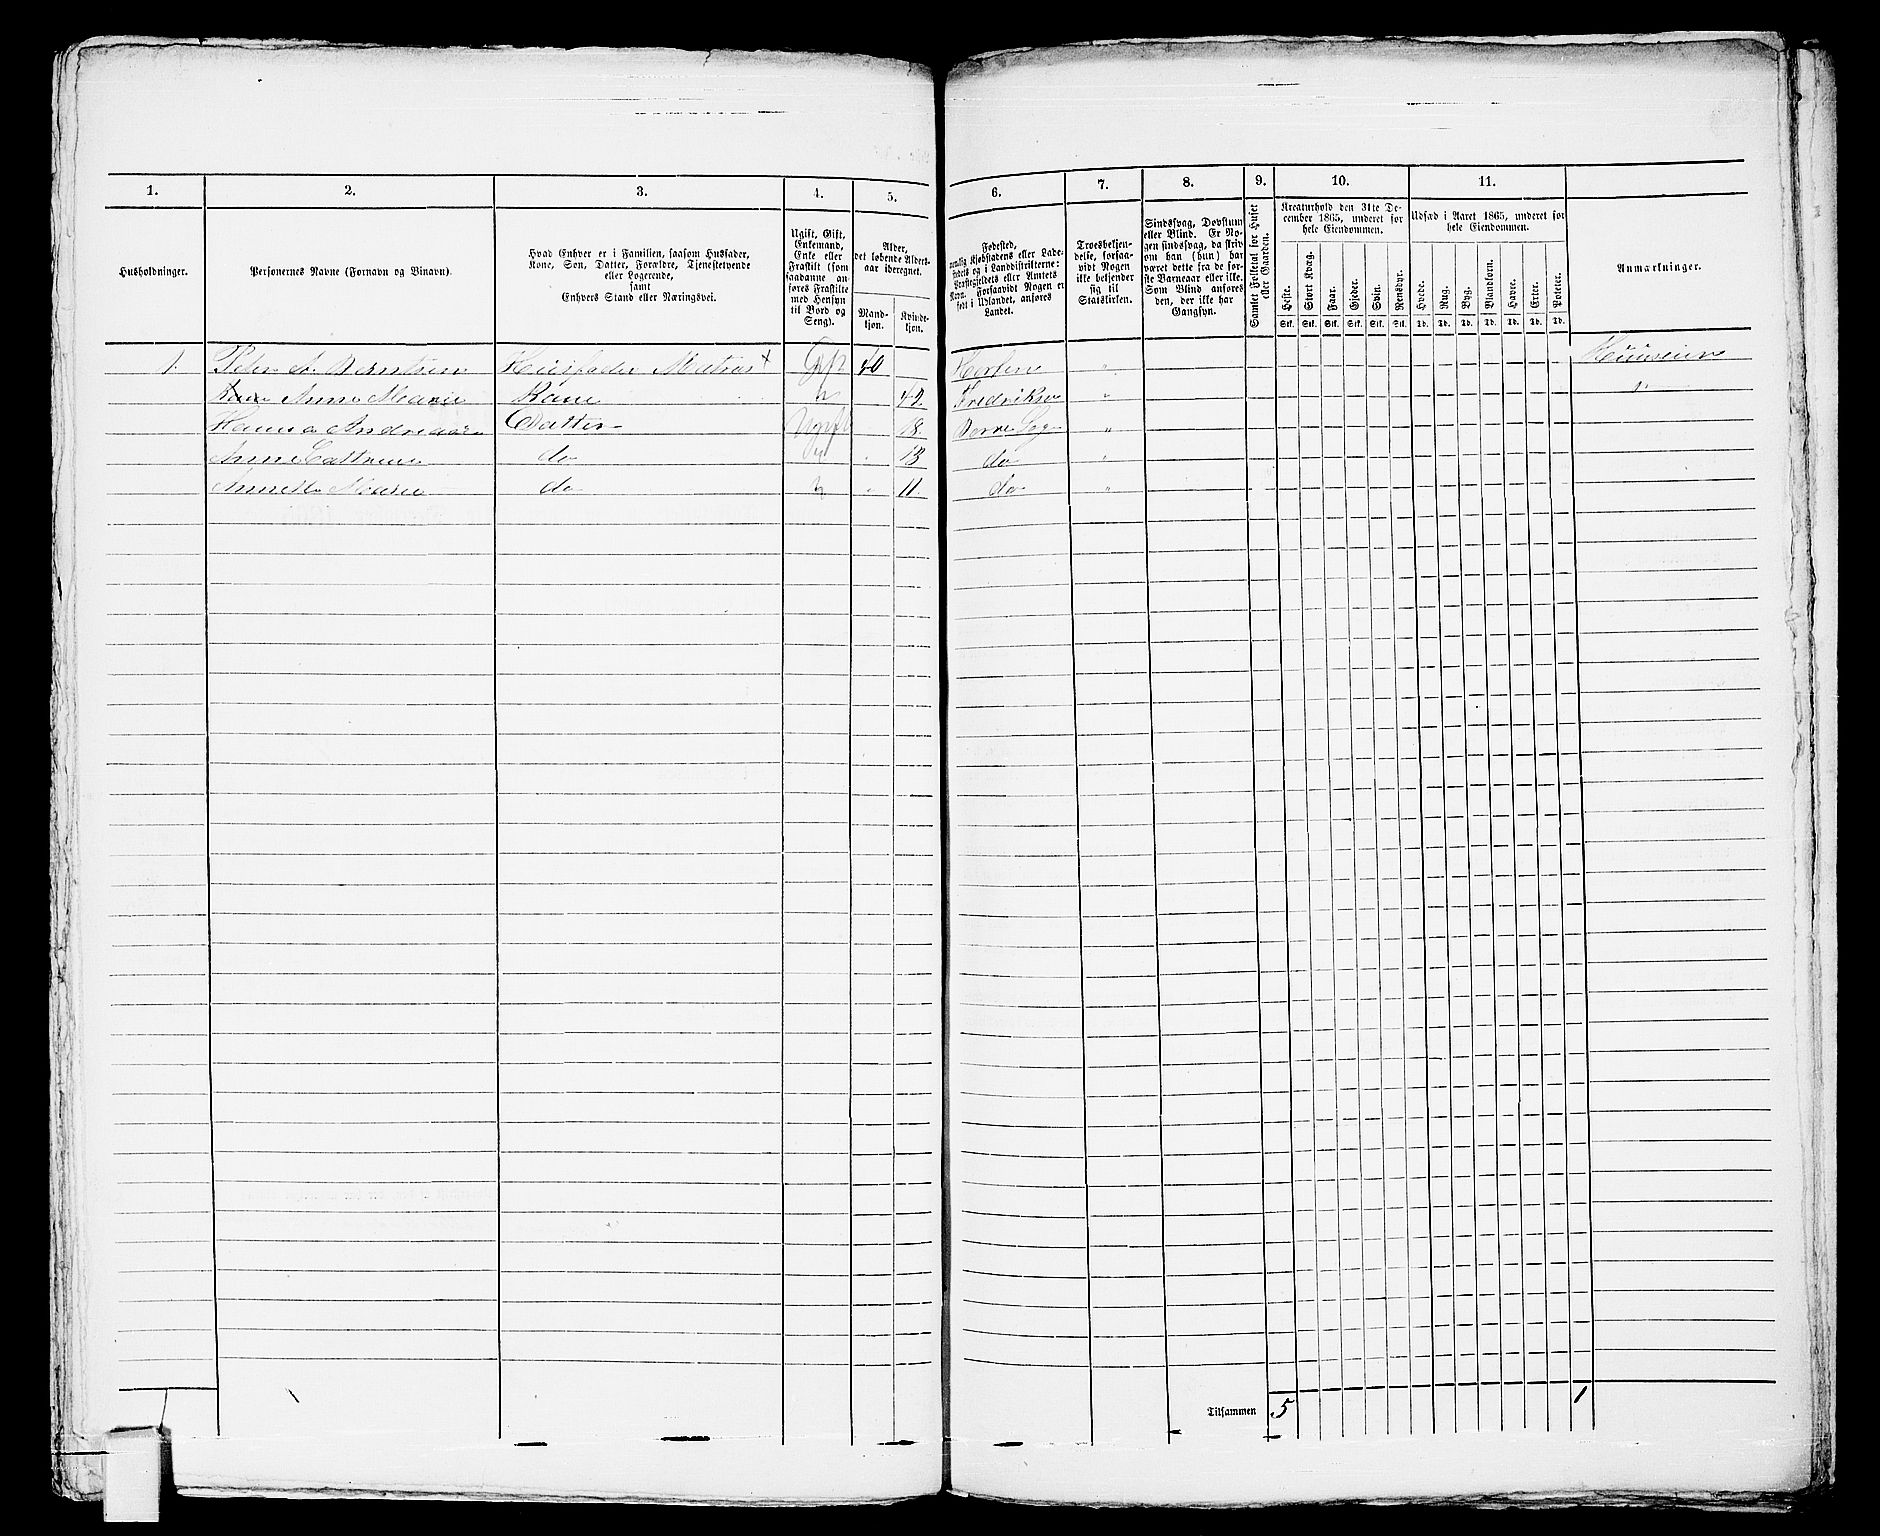 1.
2.
3.
4.
5.
6.
7.
8.
9.
10.
11.
Husholdninger.
Personernes Navne (Fornavn og Vinavn).
Hvad Enhver er i Familien, saasom Husfader,
Kone, Søn, Datter, Forældre, Tjenestetyende
eller Logerende,
samt
Enhvers Stand eller Næringsvei.
Ugift, Gift,
Enkemand,
Enke eller
Fraskilt (som
saadanne an-
føres Fraskilte
med Hensyn
til Bord og
Seng).
Alder,
det løbende Alders-
aar iberegnet.
Mand-
kjøn.
Kvinde-
kjøn.
Fødested,
nemlig Kjøbstadens eller Lade-
stedets og i Landdistrikterne:
Præstegjeldets eller Amtets
Navn. Forsaavidt Nogen er
født i Udlandet, anføres
Landet.
Troesbekjen-
delse, forsaa-
vidt Nogen
ikke bekjender
sig til
Statskirken.
Sindssvag, Døvstum
eller Blind. Er No-
gen sindssvag, da skriv
om han (hun) har
været dette fra de før-
ste Barneaar eller ikke.
Som Blind anføres
den, der ikke har
Gangsyn.
Samlet Folketal for Huset
eller Gaarden.
Kreaturhold den 31te De-
cember 1865, underet for
hele Eiendommen.
Heste. Stort Kvæg. Faar. Gjeder. Svin. Rensdyr.
Stk. Stk. Stk. Stk. Stk. Stk.
Udsæd i Aaret 1865, underet for
hele Eiendommen.
Hvede. Rug. Byg. Blandkorn. Havre. Erter. Poteter.
Td. Td. Td. Td. Td. Td. Td.
Anmærkninger.
1. Peder A. Berntsen Huusfader Matros + Gift 40 Horten "
Anne Marie Kone " 42 "
Hanna Datter Ugift 18 "
do " 13 do "
Marie do " 11 do "
Tilsammen 5 1